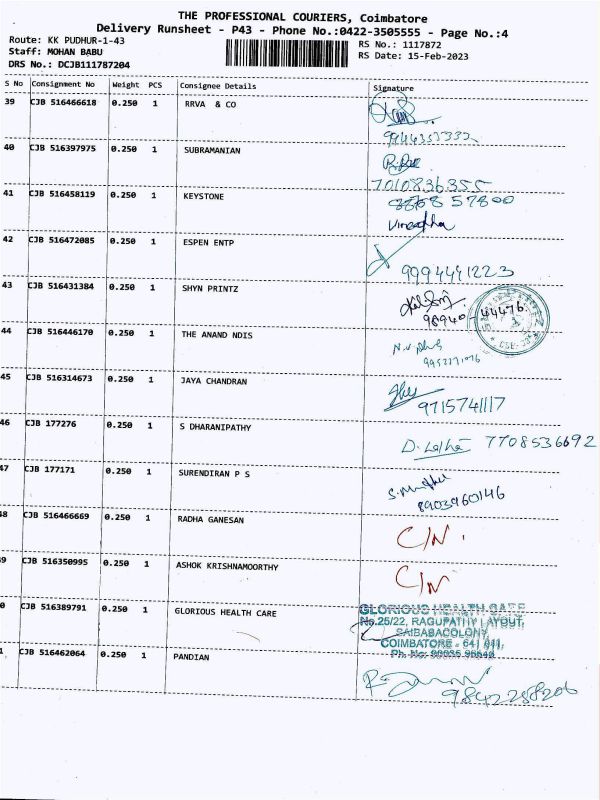 THE PROFESSIONAL COURIERS, Coimbatore
Delivery Runsheet - P43 - Phone No.:0422-3505555 - Page No.:4
Route: KK PUDHUR-1-43
RS No.: 1117872
Staff: MOHAN BABU
RS Date: 15-Feb-2023
DRS No.: DCJB111787204
S No Consignment No Weight PCS Consignee Details Signature
39 CJB 516466618 0.250 1 RRVA & CO
9944353332
40 CJB 516397975 0.250 1 SUBRAMANIAN
7010836355
41 CJB 516458119 0.250 1 KEYSTONE
57800
42 CJB 516472085 0.250 1 ESPEN ENTP
9994441223
43 CJB 516431384 0.250 1 SHYN PRINTZ
98940-44476
44 CJB 516446170 0.250 1 THE ANAND NDIS
45 CJB 516314673 0.250 1 JAYA CHANDRAN
9715741117
46 CJB 177276 0.250 1 S DHARANIPATHY
D. Latha 7708536692
47 CJB 177171 0.250 1 SURENDIRAN P S
8903960146
48 CJB 516466669 0.250 1 RADHA GANESAN
C/N.
9 CJB 516350995 0.250 1 ASHOK KRISHNAMOORTHY
C/N
0 CJB 516389791 0.250 1 GLORIOUS HEALTH CARE
GLORIOUS HEALTH CARE
No.25/22, RAGUPATHY LAYOUT,
SAIBABACOLONY,
COIMBATORE - 641 011.
1 CJB 516462064 0.250 1 PANDIAN
9842258206